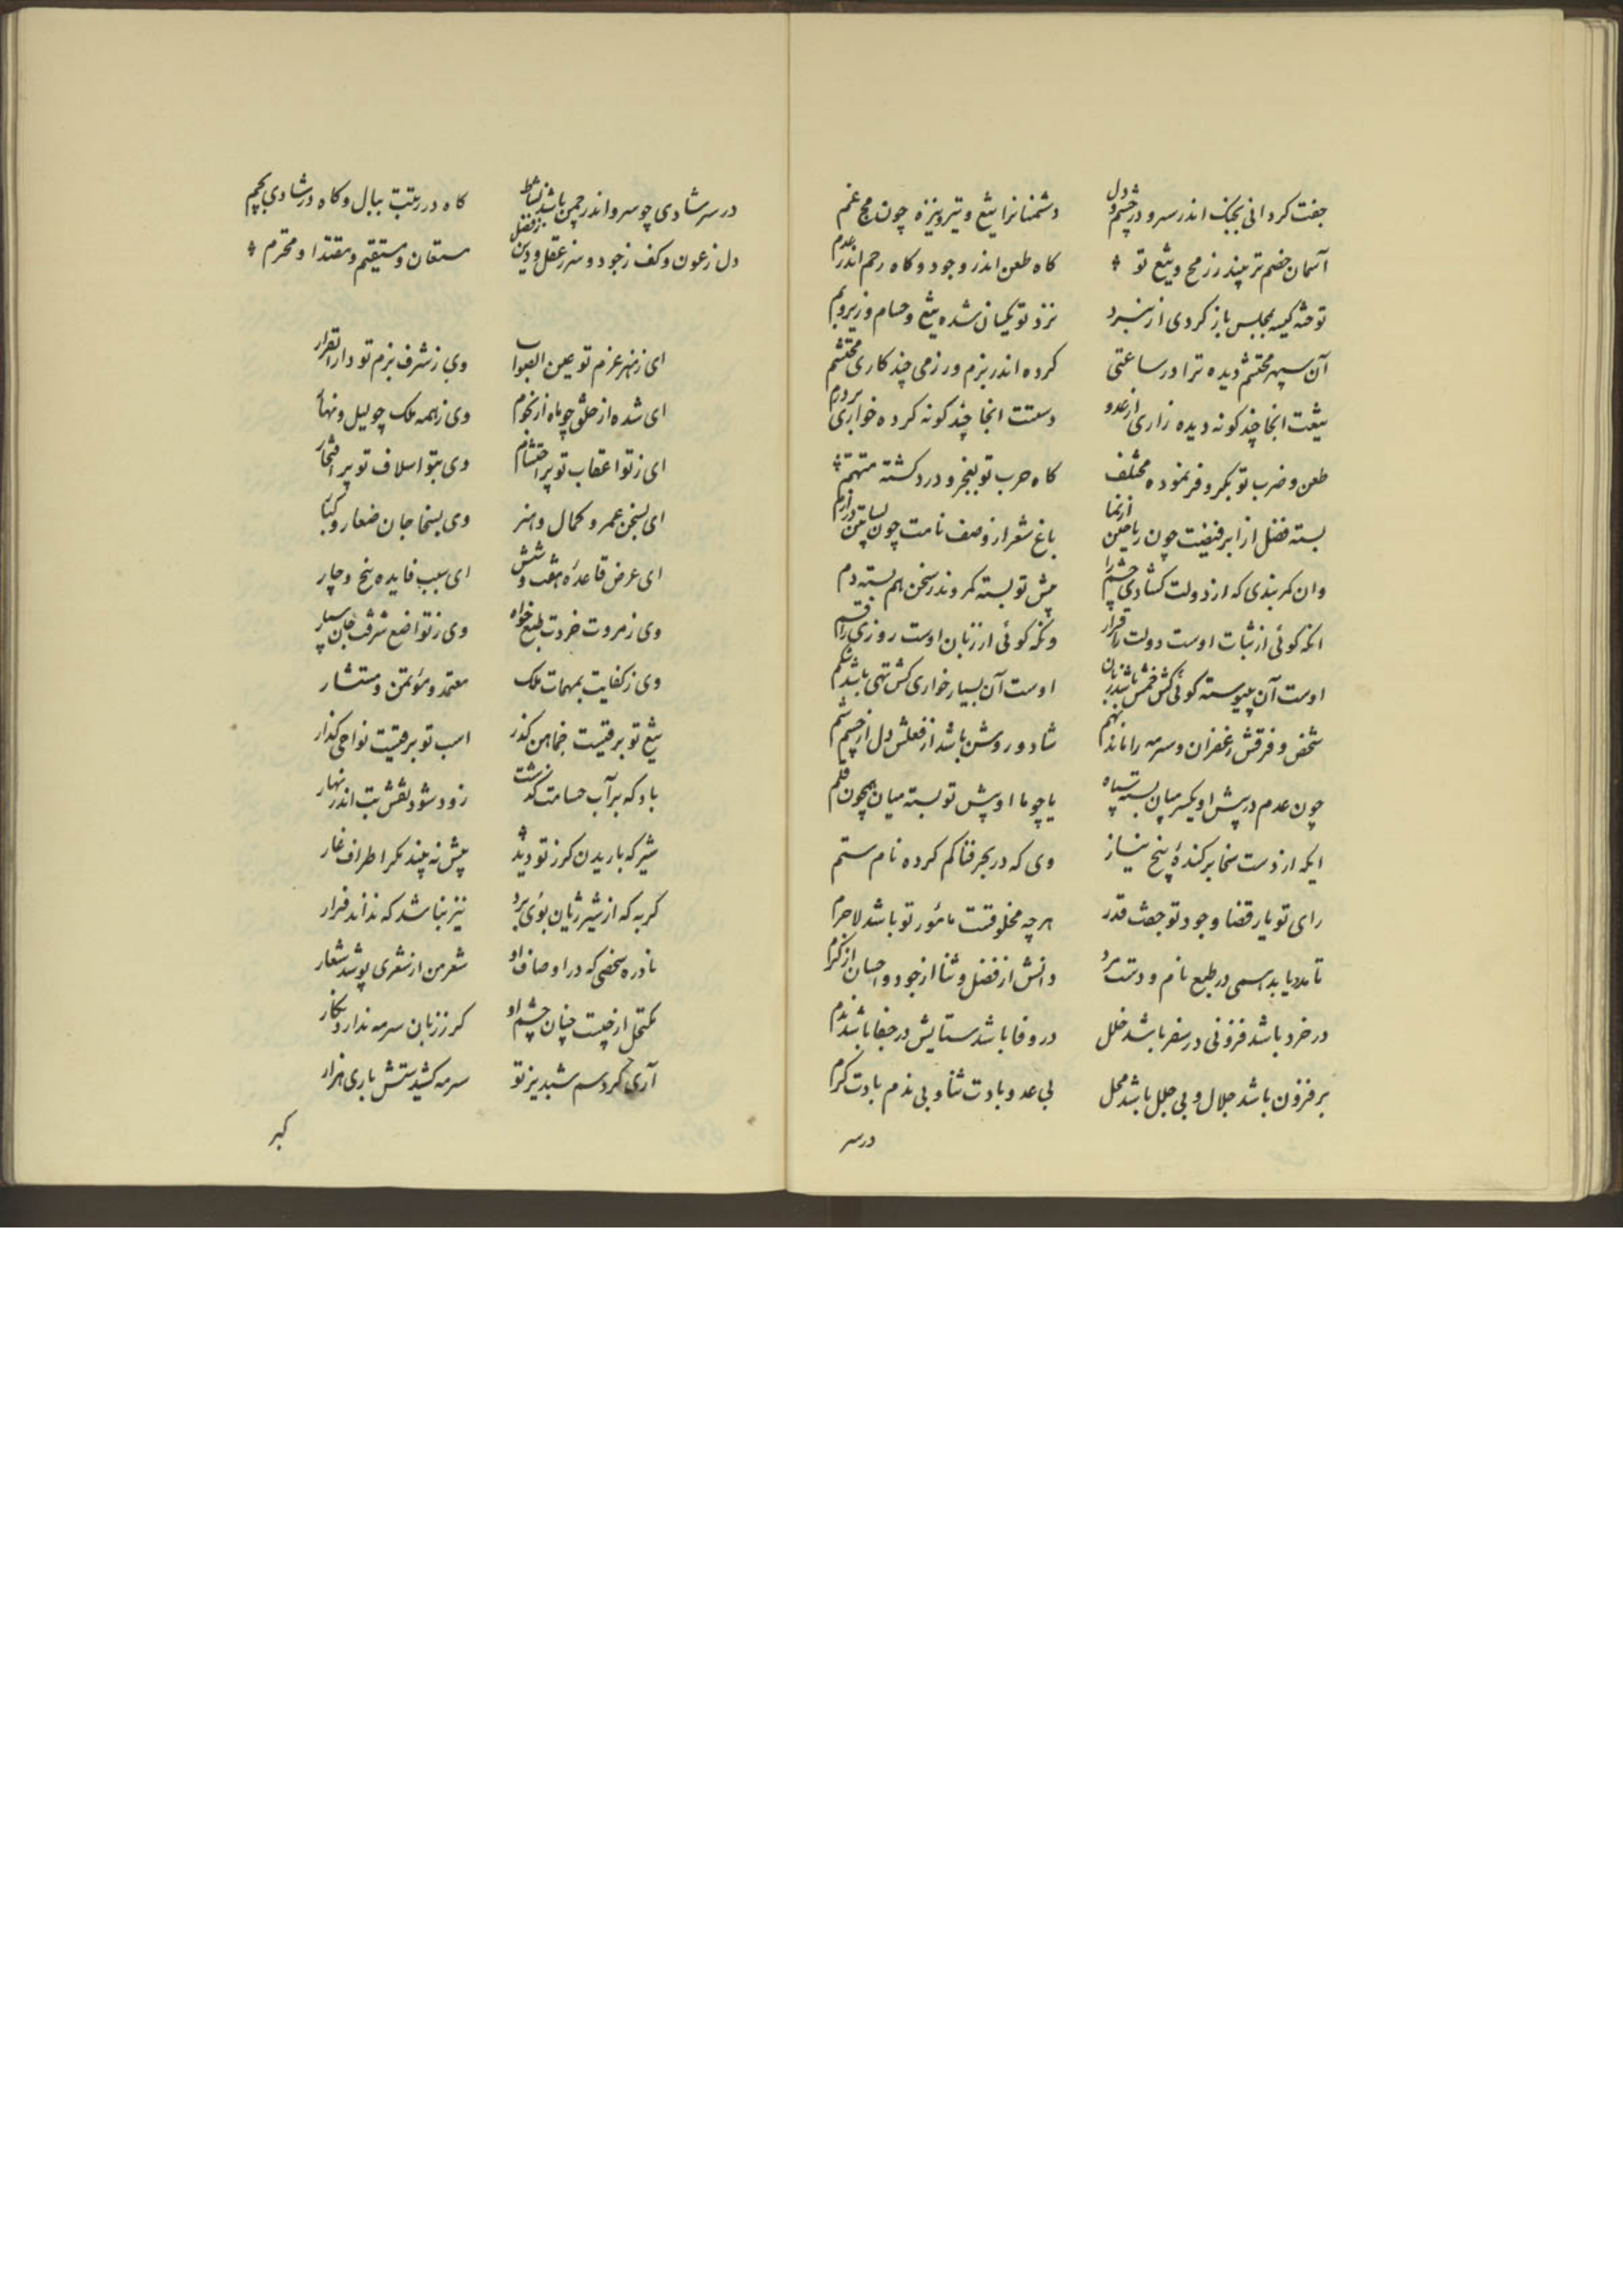 جفت کردانی بجنک اندر سر و در چشم و دل دشمنانرا تیغ و تیر و نیزه چون مخ غم
آسمان خصم تر بیند ز رمح و تیغ تو کاه طعن اندر وجود و کاه رحم اندر عدم
نزد تو یکسان شده تیغ و حسام و زیر و بم
آن سپهر محتشم دیده ترا در ساعتی کرده اندر بزم و رزمی چند کاری محتشم
تیغت انجا چند کونه دیده زاری از عدو دستت انجا چند کونه کرده خواری بر درم
طعن و ضرب تو بکر و فر نموده مختلف کاه حرب تو بفخر و درد کشته متهم
بسته فضل از ابر فیضت چون ریاحین از نما باغ شعر از وصف نامت چون بساتین در ارم
وان کمربندی که از دولت کشادی چشم را پیش تو بسته کمر وندر سخن هم بسته دم
انکه کوئی از ثبات اوست دولت را قرار ونکه کوئی از زبان اوست روزی را قسم
اوست آن پیوسته کوئی کش خمش باشد زبان اوست آن بسیار خواری کش تهی باشد شکم
شخص و فرقش زعفران و سرمه را ماند بهم شاد و روشن باشد از فعلش دل از چشم
چون عدم در پیش او یکسر میان بسته سپاه یا چو ما او پیش تو بسته میان همچون قلم
ایکه از دست سخا برکندۀ بیخ نیاز وی که در بحر فنا کم کرده نام ستم
رای تو یار قضا و جود تو جفت قدر هرچه مخلوقست مأمور تو باشد لاجرم
تا مدد یابد همی در طبع نام و دست مرد دانش از فضل و ثنا از جود و احسان از کرم
در خرد باشد فزونی در سفر باشد خلل در وفا باشد ستایش در جفا باشد ندم
بر فزون باشد جلال و بی خلل باشد محل بی عدو بادت ثنا و بی ندم بادت کرم
درسر
در سر شادی چو سرو اندر چمن باشد نشاط کاه در رتبت ببال و کاه در شادی بچم
دل ز عون و کف ز جود و سر ز عقل و دین ز فضل مستعان و مستقیم و مقتدا و محترم
ای ز هنر عزم تو عین الصواب وی ز شرف بزم تو دار القرار
ای شده از خلق چو ماه از نجوم وی ز همه ملک چو لیل و نهار
ای ز تو اعقاب تو پر احتشام وی بتو اسلاف تو پر افتخار
ای بسخن عمر و کمال و هنر وی بسخا جان صغار و کبار
ای عرض قاعدۀ هفت و شش ای سبب فایده پنج و چار
وی ز مروت خردت طبع خواه وی ز تواضع شرفت جان سپار
وی ز کفایت بمهمات ملک معتمد و مؤتمن و مستشار
تیغ تو برقیست خماهن کذر اسب تو برقیست نواحی کذار
باد که بر آب حسامت کذشت زود شود نقش بت اندر بهار
شیر که باریدن کرز تو دید پیش نه بیند مکر اطراف غار
کربه که از شیر ژیان بوی برد نیز نباشد که نداند فرار
نادره شخصی که در اوصاف او شعر من از شعری پوشد شعار
مکتحل از چیست چنان چشم او کر ز زبان سرمه ندارد نکار
آری کرد سم شبدیز تو سرمه کشیدستش باری هزار
کبر